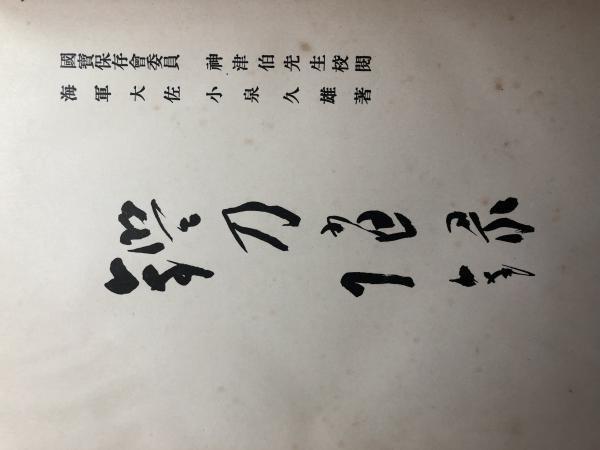 國寶保存會委員 神津伯先生校閲
海軍大佐 小泉久雄著
刀